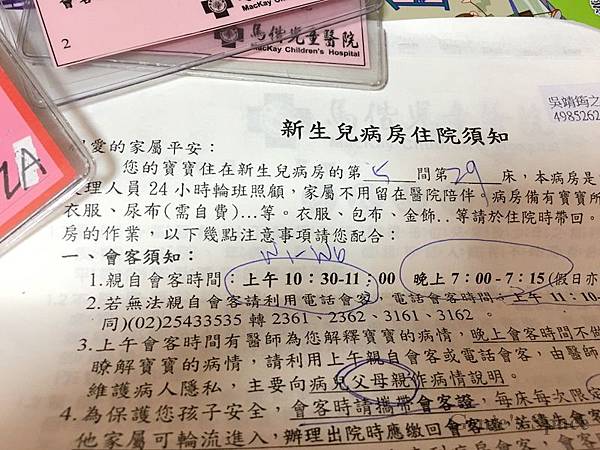 2
馬偕兒童醫院
MacKay Children's Hospital
馬偕兒童醫院
MacKay Children's Hospital
2A
吳靖筠之
4985262
新生兒病房住院須知
愛的家屬平安：
您的寶寶住在新生兒病房的第 5 間第 29 床，本病房是
理人員24小時輪班照顧，家屬不用留在醫院陪伴。病房備有寶寶所
衣服、尿布(需自費)…等。衣服、包布、金飾..等請於住院時帶回。
房的作業，以下幾點注意事項請您配合：
W1-W6
一、會客須知：
1.親自會客時間：上午10：30-11：00 晚上7：00-7：15(假日亦
2.若無法親自會客請利用電話會客，電話會客時間：上午11：10-
同)(02)25433535 轉 2361、2362、3161、3162。
3.上午會客時間有醫師為您解釋寶寶的病情，晚上會客時間不做
瞭解寶寶的病情，請利用上午親自會客或電話會客，由醫師
維護病人隱私，主要向病兒父母親作病情說明。
4.為保護您孩子安全，會客時請攜帶會客證，每床每次限
他家屬可輪流進入，辦理出院時應繳回會客證